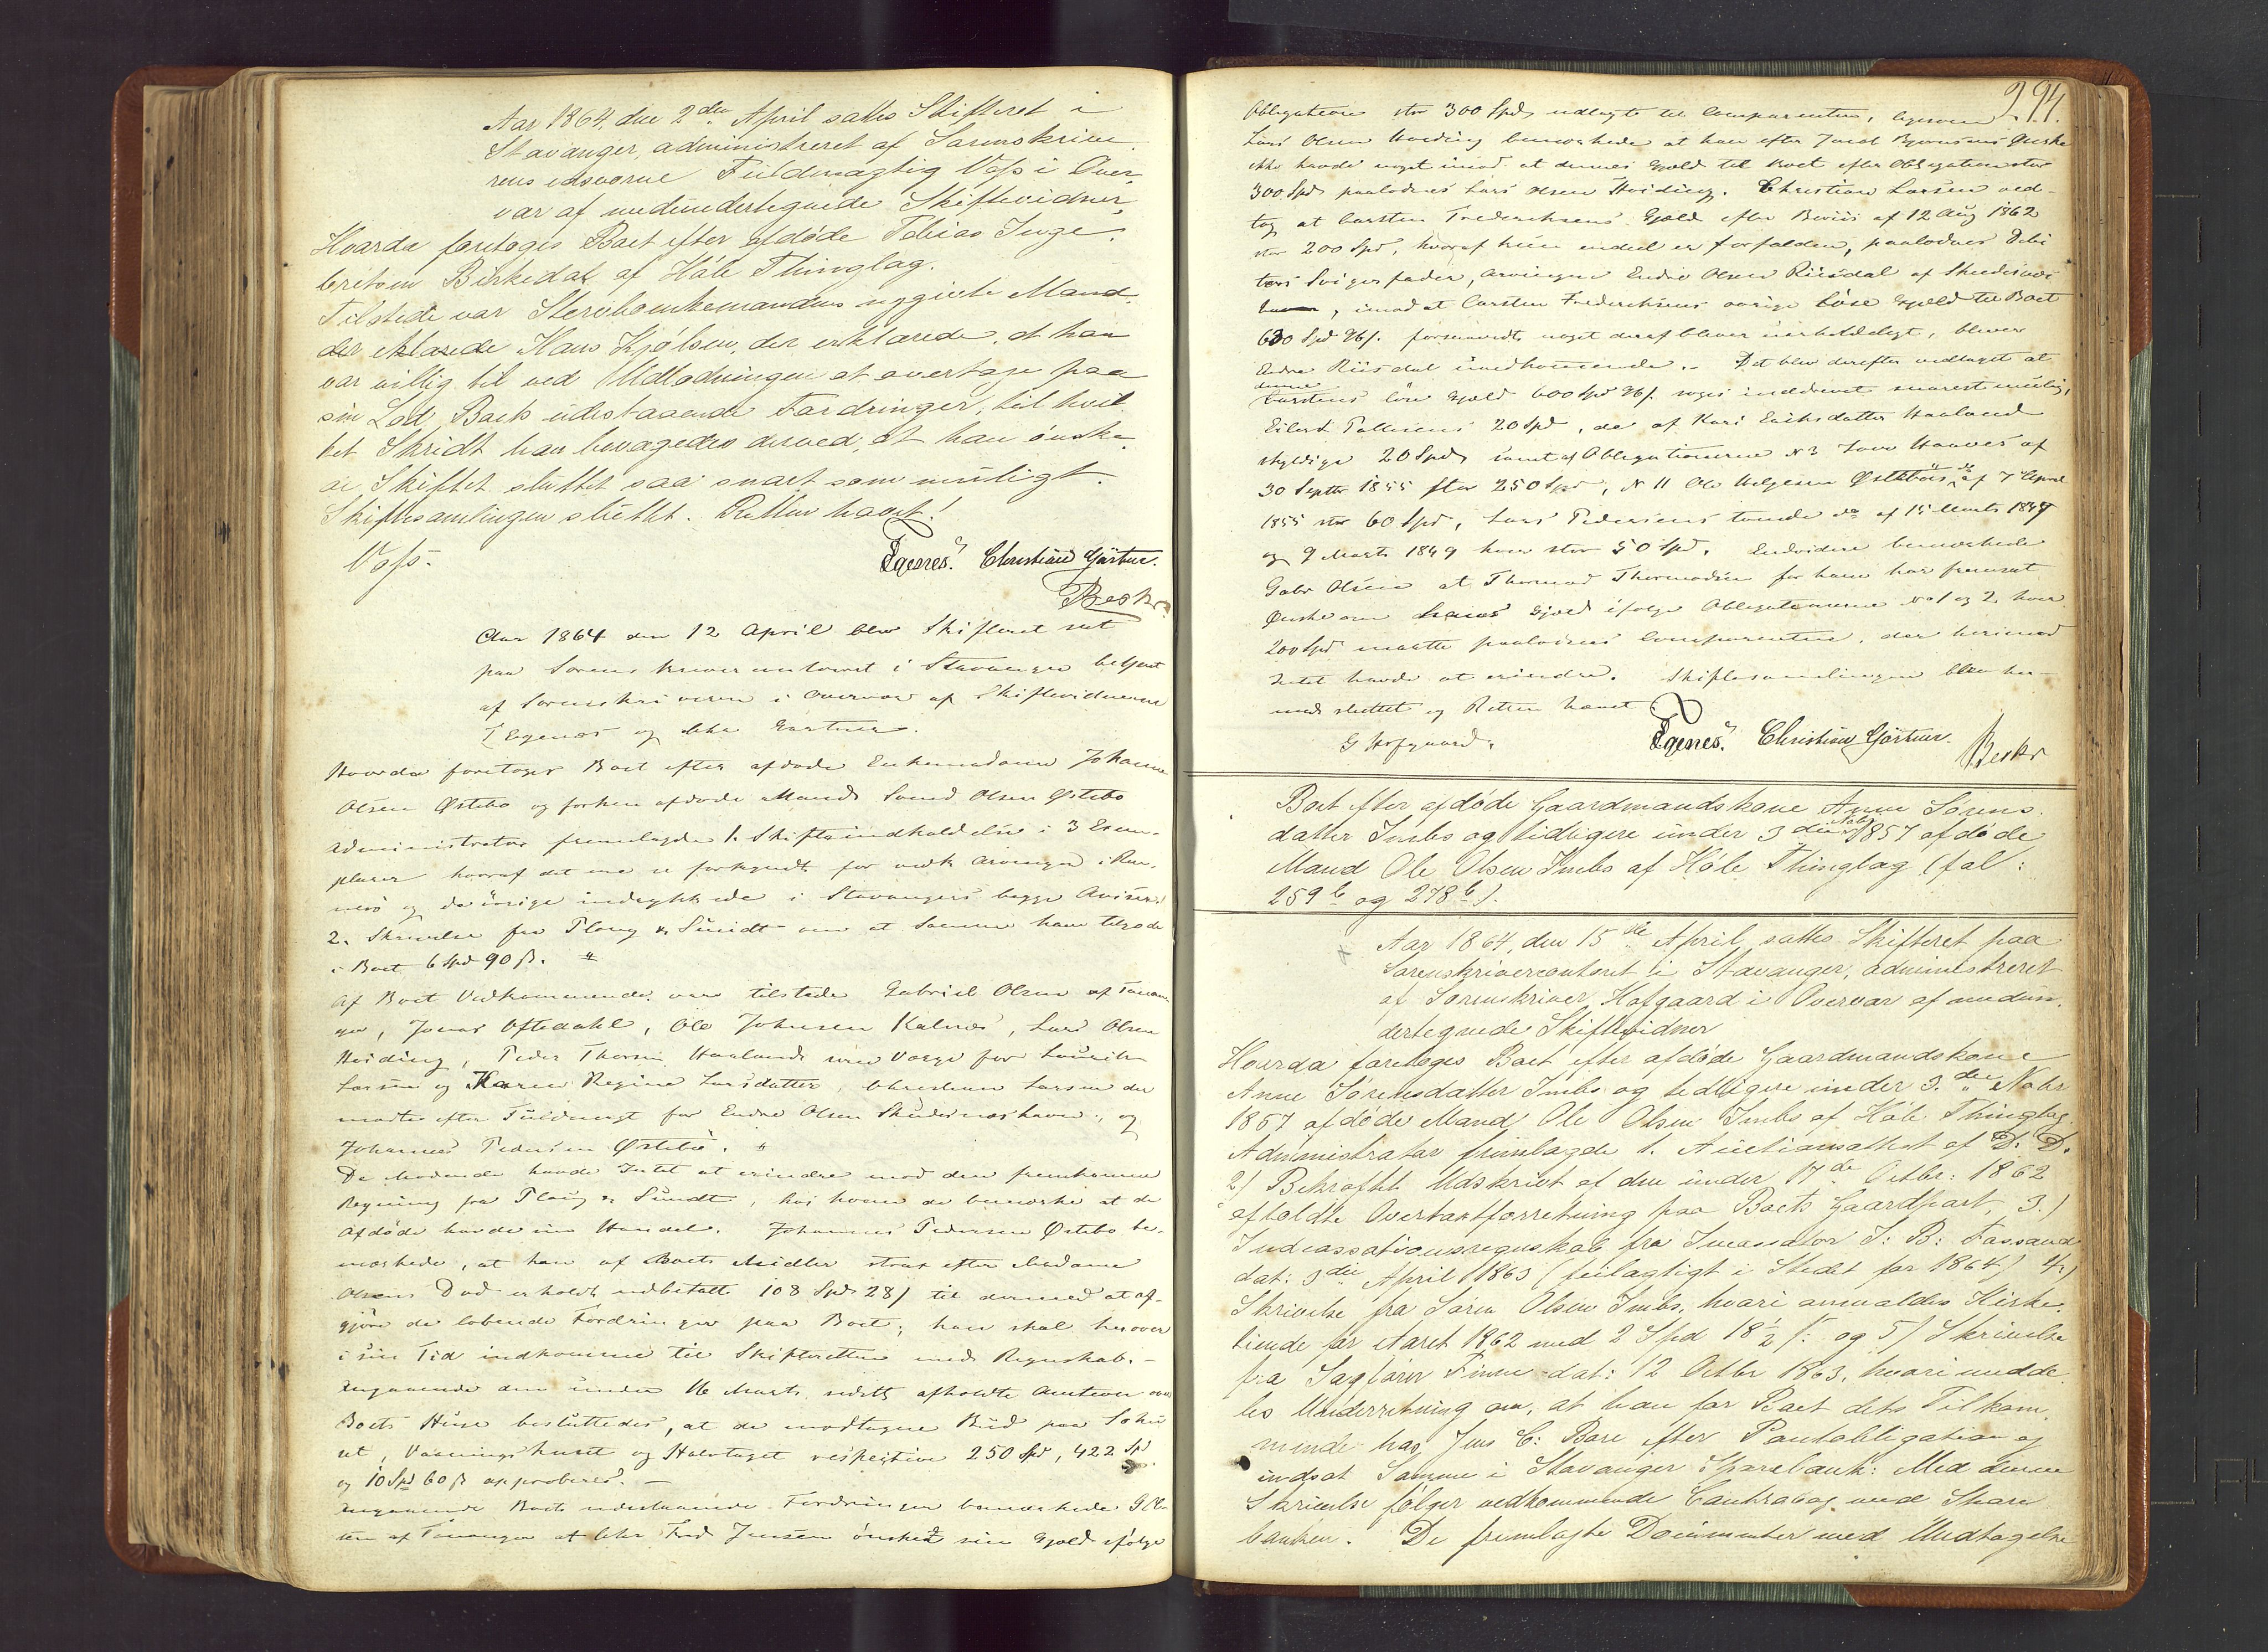 Aar 1864, den 2den April sattes Skifteret i
Stavanger, administreret af Sorenskrive-
rens edsvorne Fuldmægtig Voss i Over-
vær af medundertegnede Skiftevidner,
Hvorda foretoges Boet efter afdøde Tobias Inge-
bretsen Birkedal af Høle Thinglag.
Tilstede var Stervboenkemandens nygivte Mand
der erklærede Hans Kjølsen, der erklærede, at han
var villig til ved Udlodningen at overtage paa
sin Lod Boets udestaaende Fordringer, til hvil-
ket Skridt han bevægedes derved, at han ønske-
de Skiftet sluttet saa snart som muligt.
Skiftesamlingen sluttet. Retten hævet!
Voss.
Egenes. Christian Gärtner.
Beskr
Aar 1864 den 12 April blev Skifteret sat
paa Sorenskrivercontoret i Stavanger betjent
af Sorenskriveren i Overvær af Skiftevidnerne
T Egenæs og Chr Gartner.
Hvorda foretoges Boet efter afdøde Enkemadame Johanne
Olsen Østebø og forhen afdøde Mand Svend Olsen Østebø
Administrator fremlagde 1. Skifteindkaldelse i 3 Exem-
plarer hvoraf det ene er forkyndt for endk Arvinger i Ren-
nesø og de øvrige indrykkede i Stavangers begge Aviser.
2. Skrivelse fra Ploug & Sundt om at Samme have tilgode
i Boet 6 Spd 90 ß.
Af Boet Vedkommende vare tilstede Gabriel Olsen af Tanan-
ger, Jonas Oftedahl, Ole Johnsen Kalnes, Lars Olsen
Hviding, Peder Thorsen Haaland som Værge for Lauritz
Larsen og Karen Regine Larsdatter, Christian Larsen der
mødte efter Fuldmagt for Endre Olsen Skudesnæshavn, og
Johannes Pedersen Østebø.
De Mødende havde Intet at erindre mod den fremkomne
Regning fra Ploug & Sundt, hos hvem de bemærke at de
Afdøde havde sin Handel. Johannes Pedersen Østebø be-
mærkede, at han af Boets Midler strax efter Madame
Olsens Død erholdt udbetalt 108 Spd 28 ß til dermed at af-
gjøre de løbende Fordringer paa Boet; han skal herover
i sin Tid indkomme til Skifteretten med Regnskab.-
Angaaende den under 16 Marts sidstl afholdte Auction over
Boets Huse besluttedes, at de modtagne Bud paa Søhu-
set, Vaaningshuset og Halvtaget respective 250 Spd, 422 Spd
og 10 Spd 60 ß approberes.-
Angaaende Boets udestaaende Fordringer bemærkede G Ol-
sen af Tananger at Chr Fred Jensen ønsked sin Gjæld ifølge
294.
Obligation stor 300 Spd udlagte til Comparenten, ligesom
Lars Olsen Hviding bemærkede at han efter Jacob Bjørnsens Ønske
ikke havde noget imod at dennes Gjæld til Boet efter Obligation stor
300 Spd paalodnes Lars Olsen Hviding. Christian Larsen ved-
tog at Carsten Frederiksens Gjæld efter Beviis af 12 Aug 1862
stor 200 Spd, hvoraf kun endeel er forfalden, paalodnes Debi-
tors Svigerfader, Arvingen Endre Olsen Riisdal af Skudesnæs
, imod at Carsten Frederiksens øvrige løse Gjæld til Boet
600 Spd 96 ß. forsaavidt noget deraf bliver uerholdeligt, bliver
Endre Riisdal uvedkommende.- Det blev derefter vedtaget at
denne
Carstens løse Gjæld 600 Spd 96 ß. søges inddrevet snarest muelig,
Eilert Tallesens 20 Spd, de af Kari Eriksdatter Haaland
skyldige 20 Spd, samt af Obligationerne N 3 Haaves af
30 Septbr 1855 stor 250 Spd, N 11 Ole Helgesen Østebøs do af 7 April
1855 stor 60 Spd, Lars Pedersens tvende do af 15 Marts 1849
og 9 Marts 1849 hver stor 50 Spd. Endvidere bemærkede
Gabr Olsen at Thormod Thormodsen for ham har fremsat
Ønske om hans Gjæld ifølge Obligationerne No 1 og 2 hver
200 Spd maatte paalodnes Comparenten, der herimod
Intet havde at erindre. Skiftesamlingen blev her-
med sluttet og Retten hævet
G Hofgaard.
Egenes. Christian Gärtner.
Beskr
Boet efter afdøde Gaardmandskone Anne Sørens-
datter Imbs og tidligere under 3die Novbr 1857 afdøde
Mand Ole Olsen Imbs af Høle Thinglag (fol:
259 b og 278 b).
Aar 1864, den 15de April sattes Skifteret paa
Sorenskrivercontoret i Stavanger, administreret
af Sorenskriver Hofgaard i Overvær af medun-
dertegnede Skiftevidner
Hvorda foretoges Boet efter afdøde Gaardmandskone
Anne Sørensdatter Imbs og tidligere under 3die Novbr
1857 afdøde Mand Ole Olsen Imbs af Høle Thinglag
Administrator fremlagde 1. Auctionsattest af D. D.
2) Bekræftet Udskrivt af den under 17de Octbr: 1862
afholdte Overtaxtforretning paa Boets Gaardpart, 3.)
Indcassationsregnskab fra Incassator T: B: Fossand
dat: 3die April 1863 (feilagtigt i Stedet for 1864) 4.)
Skrivelse fra Søren Olsen Imbs, hvori anmeldes Kirke-
tiende for Aaret 1862 med 2 Spd 18½ ß: og 5) Skrivelse
fra Sagfører Finne dat: 12 Octbr 1863, hvori medde-
les Underretning om, at han for Boet dets Tilkom-
mende hos Jens C: Bore efter Pantobligation og
indsat Samme i Stavanger Sparebank: Med denne
Skrivelse følger vedkommende Contrabog med Spare-
banken. De fremlagte Documenter med Undtagelse